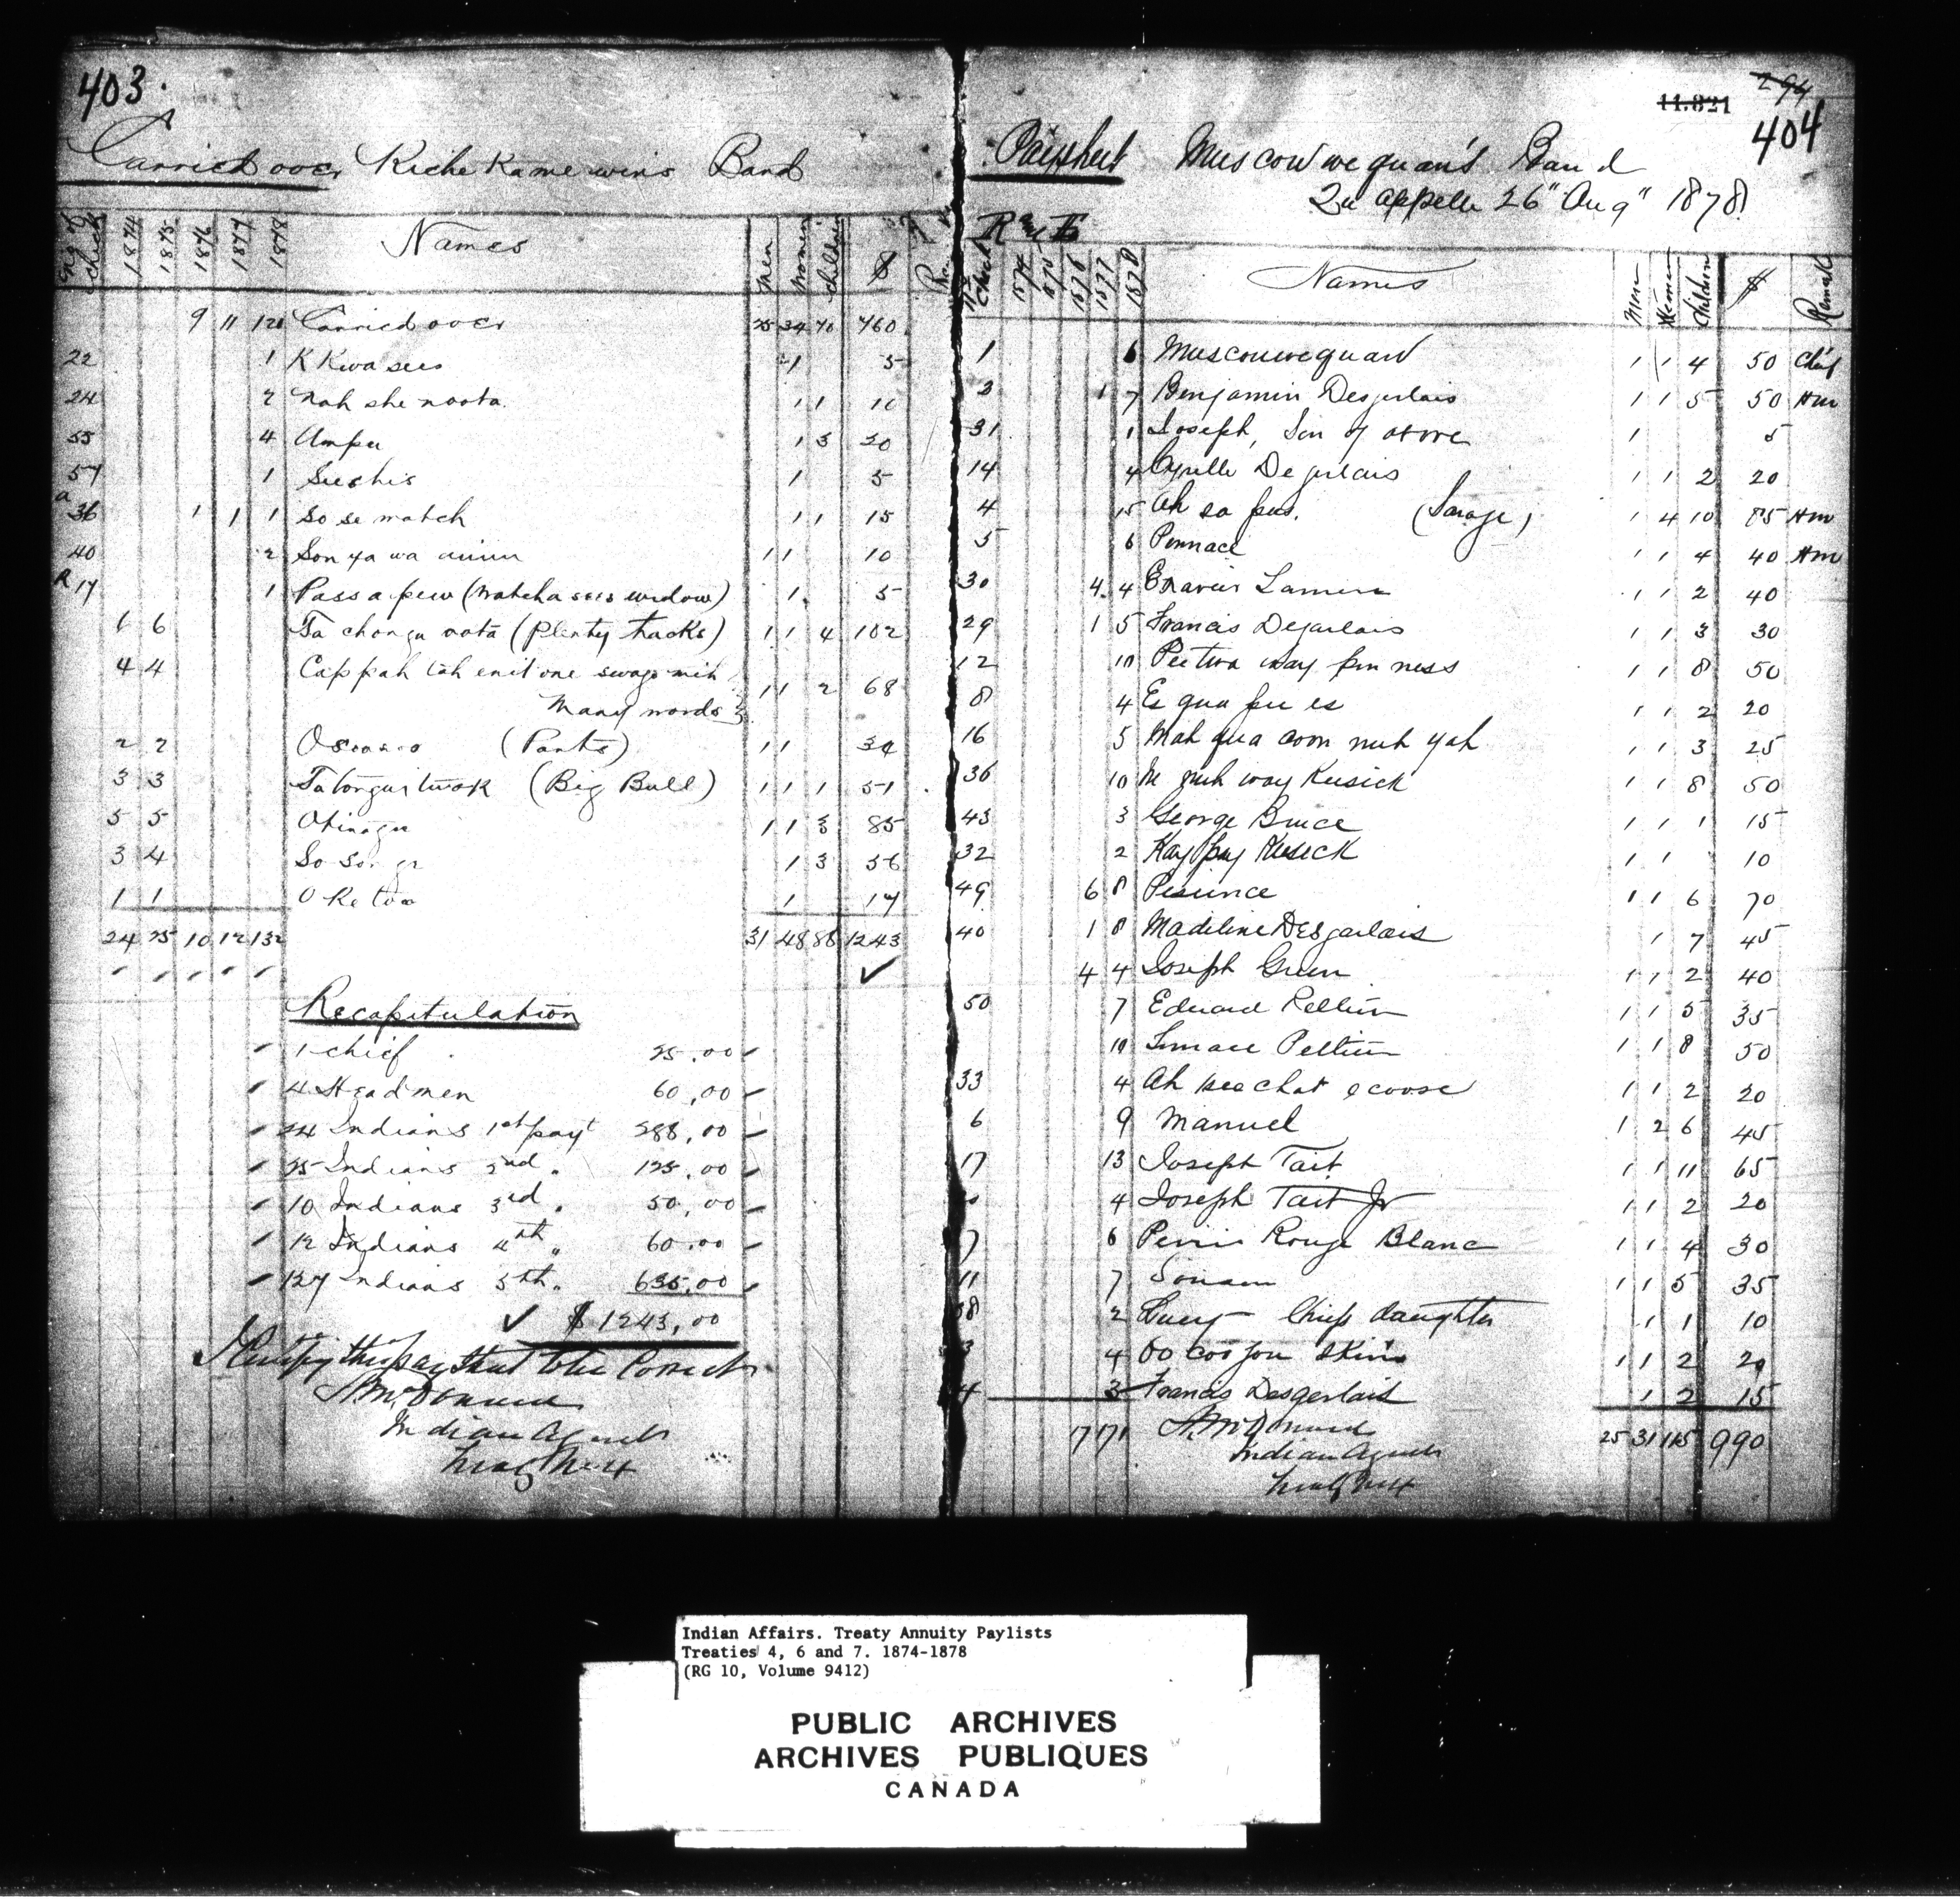 403.
Carried over Kiche Kamewin's Band
No of check 1874 1875 1876 1877 1878 Names Men Women Children $
9 11 120 Carried over 25 34 70 760
22 1 K Kwa sees 1 5
24 2 Nah she noota. 1 1 10
55 4 Umpu 1 3 20
57 1 See shis 1 5
a 36 1 1 1 So se match 1 1 15
40 2 Son ya wa 1 1 10
R 17 1 Pass a pew (Natcha sees widow) 1 5
6 6 Ta chonga nota (Plenty tracks) 1 1 4 102
4 4 Cappah tah enit one
Many words 1 1 2 68
2 2 (Pants) 1 1 34
3 3 Tatongue twok (Big Bull) 1 1 1 51
5 5 Okinagu 1 1 3 85
3 4 1 3 56
1 1 O ke twa 1 17
24 25 10 12 132 31 48 86 1243
Recapitulation
1 chief 25.00
4 Headmen 60.00
24 Indians 1st payt 288.00
25 Indians 2nd " 125.00
10 Indians 3rd " 50.00
12 Indians 4th " 60.00
127 Indians 5th " 635.00
$1243.00
I Certify this paysheet to be Correct
A. McDonald
Indian Agent
Treaty No 4
11.821
294
404
Paysheet Muscowwequan's Band
Qu'appelle 26" Aug" 1878.
No Check 1874 1875 1876 1877 1878 Names Men Women Children $ Remark
1 6 Muscouwequan 1 1 4 50 Chief
3 1 7 Benjamin Desjerlais 1 1 5 50 Hm
31 1 Joseph, Son of above 1 5
14 4 Cyrille Dejerlais 1 1 2 20
4 15 Ah sa pus. 1 4 10 85 Hm
5 6 Pennace 1 1 4 40 Hm
30 4 4 Exavier 1 1 2 40
29 1 5 Francis Dejarlais 1 1 3 30
12 10 Peetwa way pin ness 1 1 8 50
8 4 Es qua pee es 1 1 2 20
16 5 Mah qua coon nuh yah 1 1 3 25
36 10 way Kusick 1 1 8 50
43 3 George Bruce 1 1 1 15
32 2 Kay pay Kusick 1 1 10
49 6 8 1 1 6 70
40 1 8 Madeline Desjarlais 1 7 45
4 4 Joseph Green 1 1 2 40
50 7 Edward Peltier 1 1 5 35
10 Peltier 1 1 8 50
33 4 Ah kee chat e coose 1 1 2 20
6 9 Manuel 1 2 6 45
17 13 Joseph Tait 1 1 11 65
4 Joseph Tait Jr 1 1 2 20
7 6 Rouge Blanc 1 1 4 30
11 7 1 1 5 35
2 Lucy Chief's daughter 1 1 10
3 4 Oo coo jou skin 1 1 2 20
4 3 Francis Desgerlais 1 2 15
17 171 A. McDonald 25 31 115 990
Indian Agent
Treaty No 4
Indian Affairs. Treaty Annuity Paylists
Treaties 4, 6 and 7. 1874-1878
(RG 10, Volume 9412)
PUBLIC ARCHIVES
ARCHIVES PUBLIQUES
CANADA